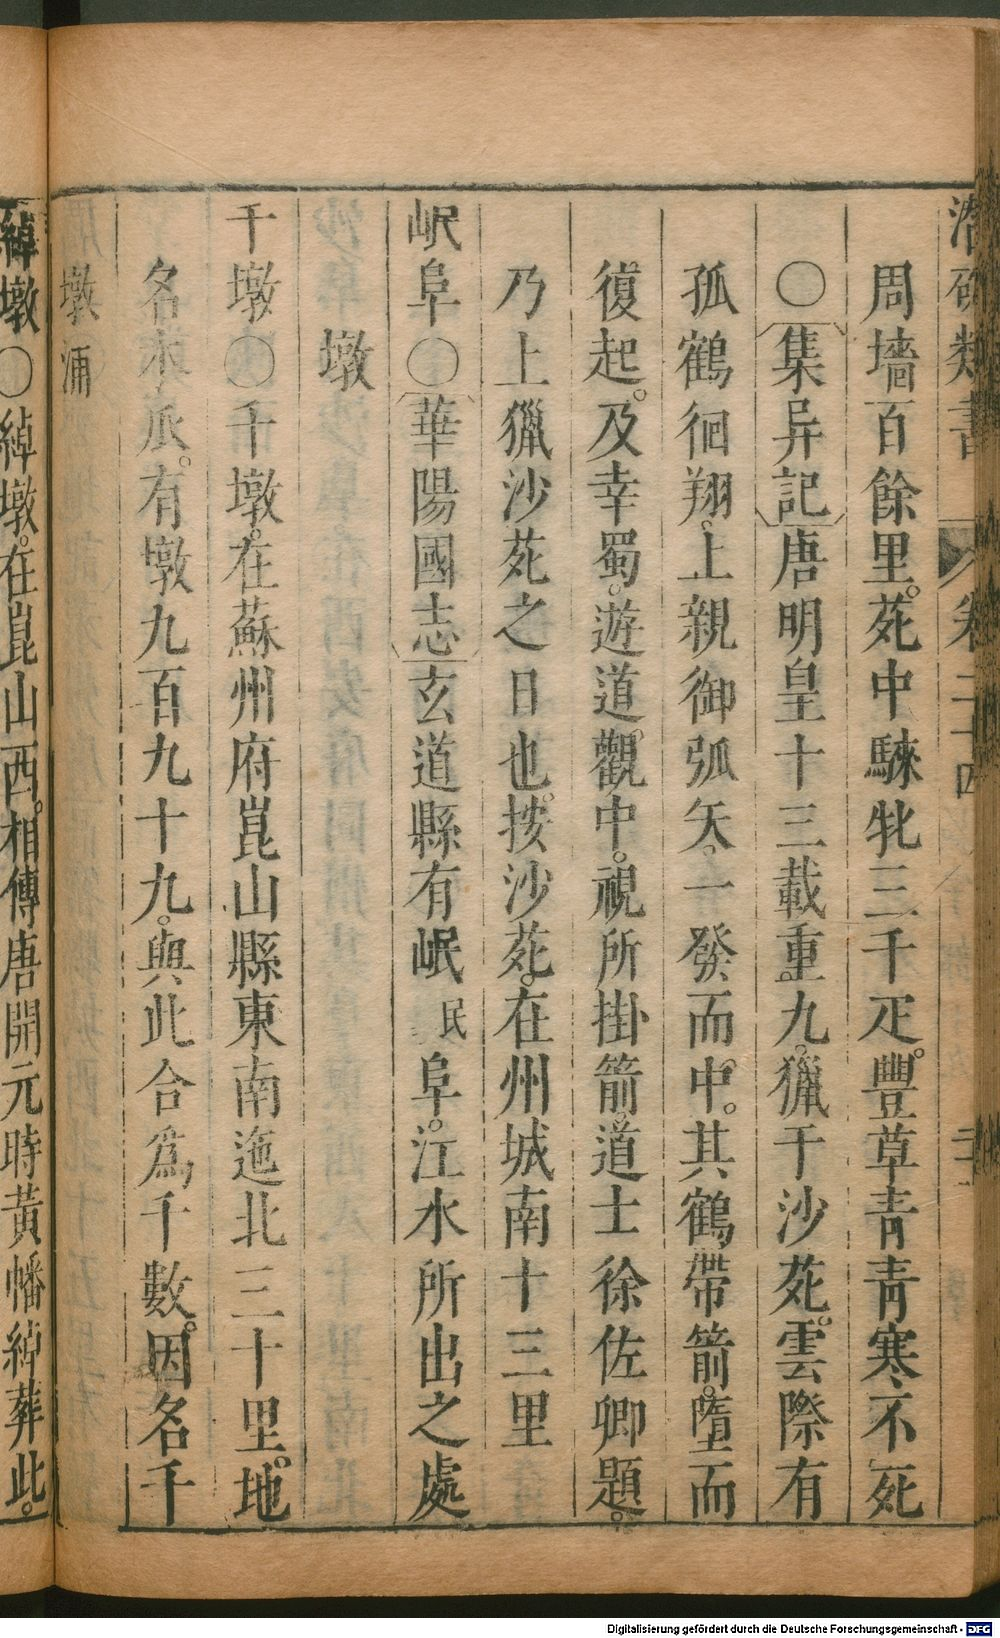 潛確類書 卷二十四 二
周墻百餘里。苑中騋牝三千疋。豐草青青寒不死
○集异記唐明皇十三載重九。獵于沙苑。雲際有
孤鶴徊翔。上親御弧矢。一發而中。其鶴帶箭。墮而
復起。及幸蜀。遊道觀中。視所掛箭。道士徐佐卿題。
乃上獵沙苑之日也。按沙苑。在州城南十三里
岷阜○華陽國志玄道縣有岷民阜。江水所出之處
墩
千墩○千墩。在蘇州府崑山縣東南迤北三十里。地
名木𤓰。有墩九百九十九。與此合為千數。因名千
墩浦
綽墩○綽墩。在崑山西。相傳唐開元時黃幡綽葬此。
Digitalisierung gefördert durch die Deutsche Forschungsgemeinschaft - DFG